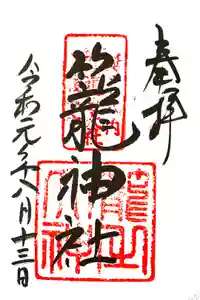 奉拝
籠神社
令和元年八月十三日